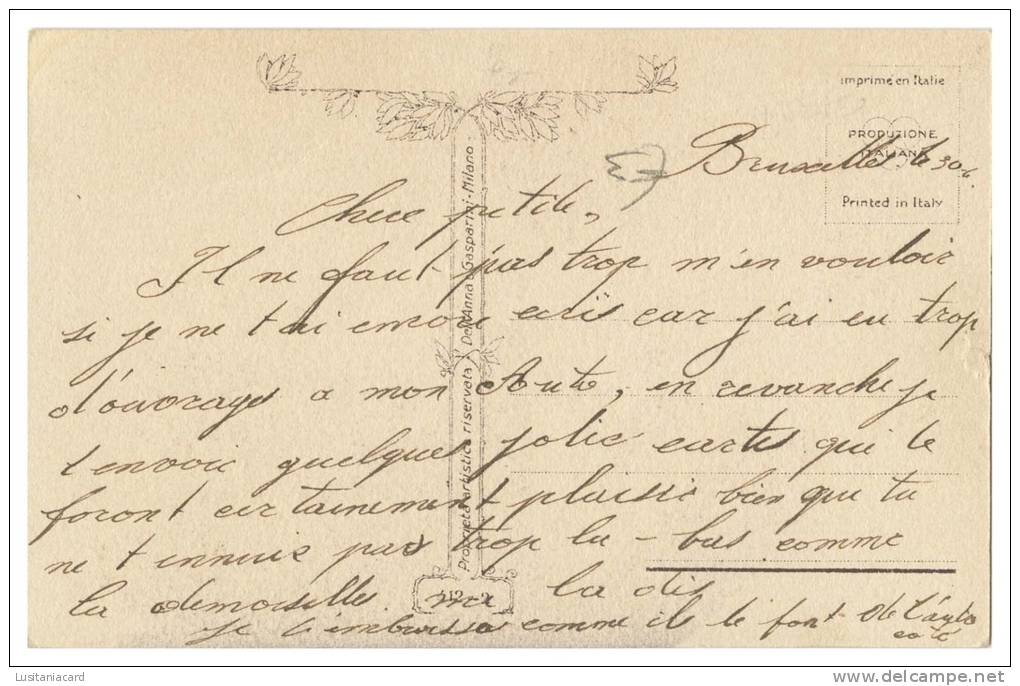 imprimé en Italie
PRODUZIONE
ITALIANA
Printed in Italy
Bruxelles le 30
Chere petite,
Il ne faut pas trop m'en vouloir
si je ne t'ai encor ecris car j'ai eu trop
d'ouvrage a mon Auto, en revanche je
t envoie quelques jolie cartes qui te
feront certainement plaisir bien que tu
ne t ennuie pas trop la-bas comme
la demoiselle me la dis
je t embrasse comme il le font de l'autre
coté
Proprietà artistica riservata Dell'Anna & Gasparini - Milano
Lusitaniacard
delcampe.net